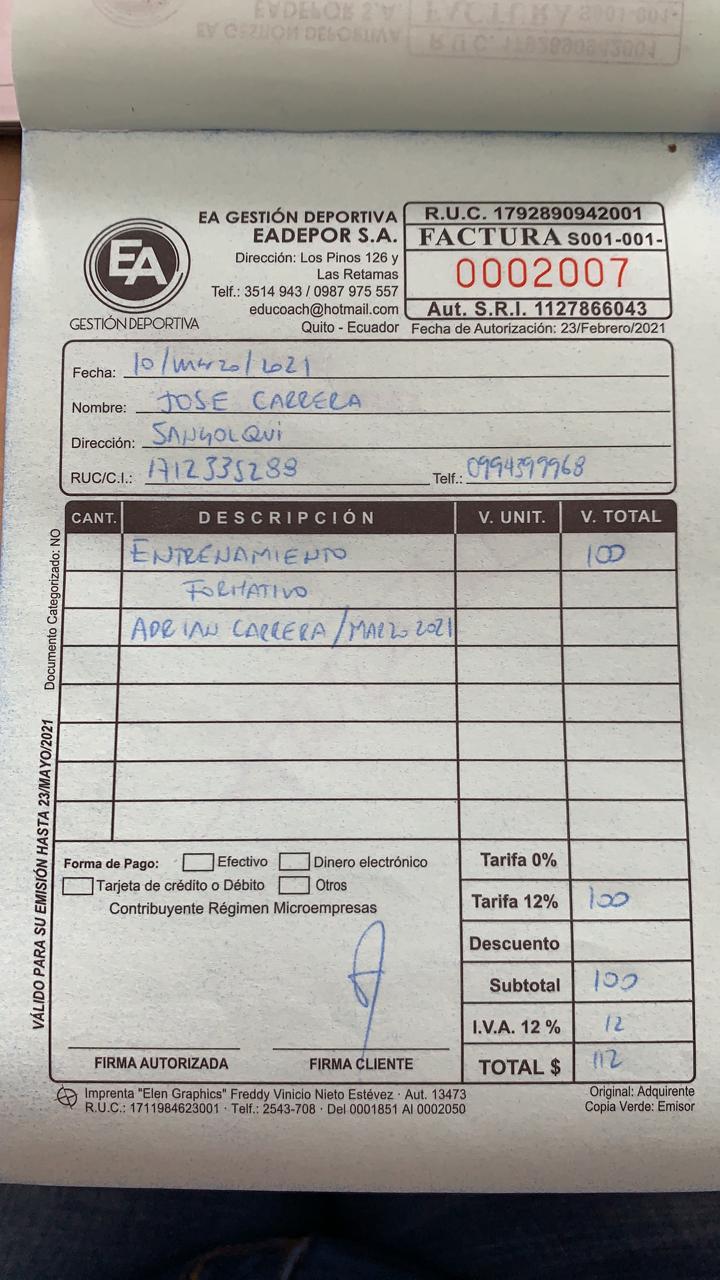 EA GESTIÓN DEPORTIVA
EADEPOR S.A.
Dirección: Los Pinos 126 y
Las Retamas
Telf.: 3514 943 / 0987 975 557
educoach@hotmail.com
Quito - Ecuador
EA
GESTIÓN DEPORTIVA
R.U.C. 1792890942001
FACTURA S001-001-
0002007
Aut. S.R.I. 1127866043
Fecha de Autorización: 23/Febrero/2021
Fecha: 10/marzo/2021
Nombre: JOSE CARRERA
Dirección: SANGOLQUI
RUC/C.I.: 1712335288 Telf.: 0994399968
CANT. DESCRIPCIÓN V. UNIT. V. TOTAL
ENTRENAMIENTO 100
FORMATIVO
ADRIAN CARRERA / MARZO 2021
Documento Categorizado: NO
VÁLIDO PARA SU EMISIÓN HASTA 23/MAYO/2021
Forma de Pago: Efectivo Dinero electrónico
Tarjeta de crédito o Débito Otros
Contribuyente Régimen Microempresas
Tarifa 0%
Tarifa 12% 100
Descuento
Subtotal 100
I.V.A. 12 % 12
TOTAL $ 112
FIRMA AUTORIZADA FIRMA CLIENTE
Imprenta "Elen Graphics" Freddy Vinicio Nieto Estévez · Aut. 13473
R.U.C.: 1711984623001 · Telf.: 2543-708 · Del 0001851 Al 0002050
Original: Adquirente
Copia Verde: Emisor